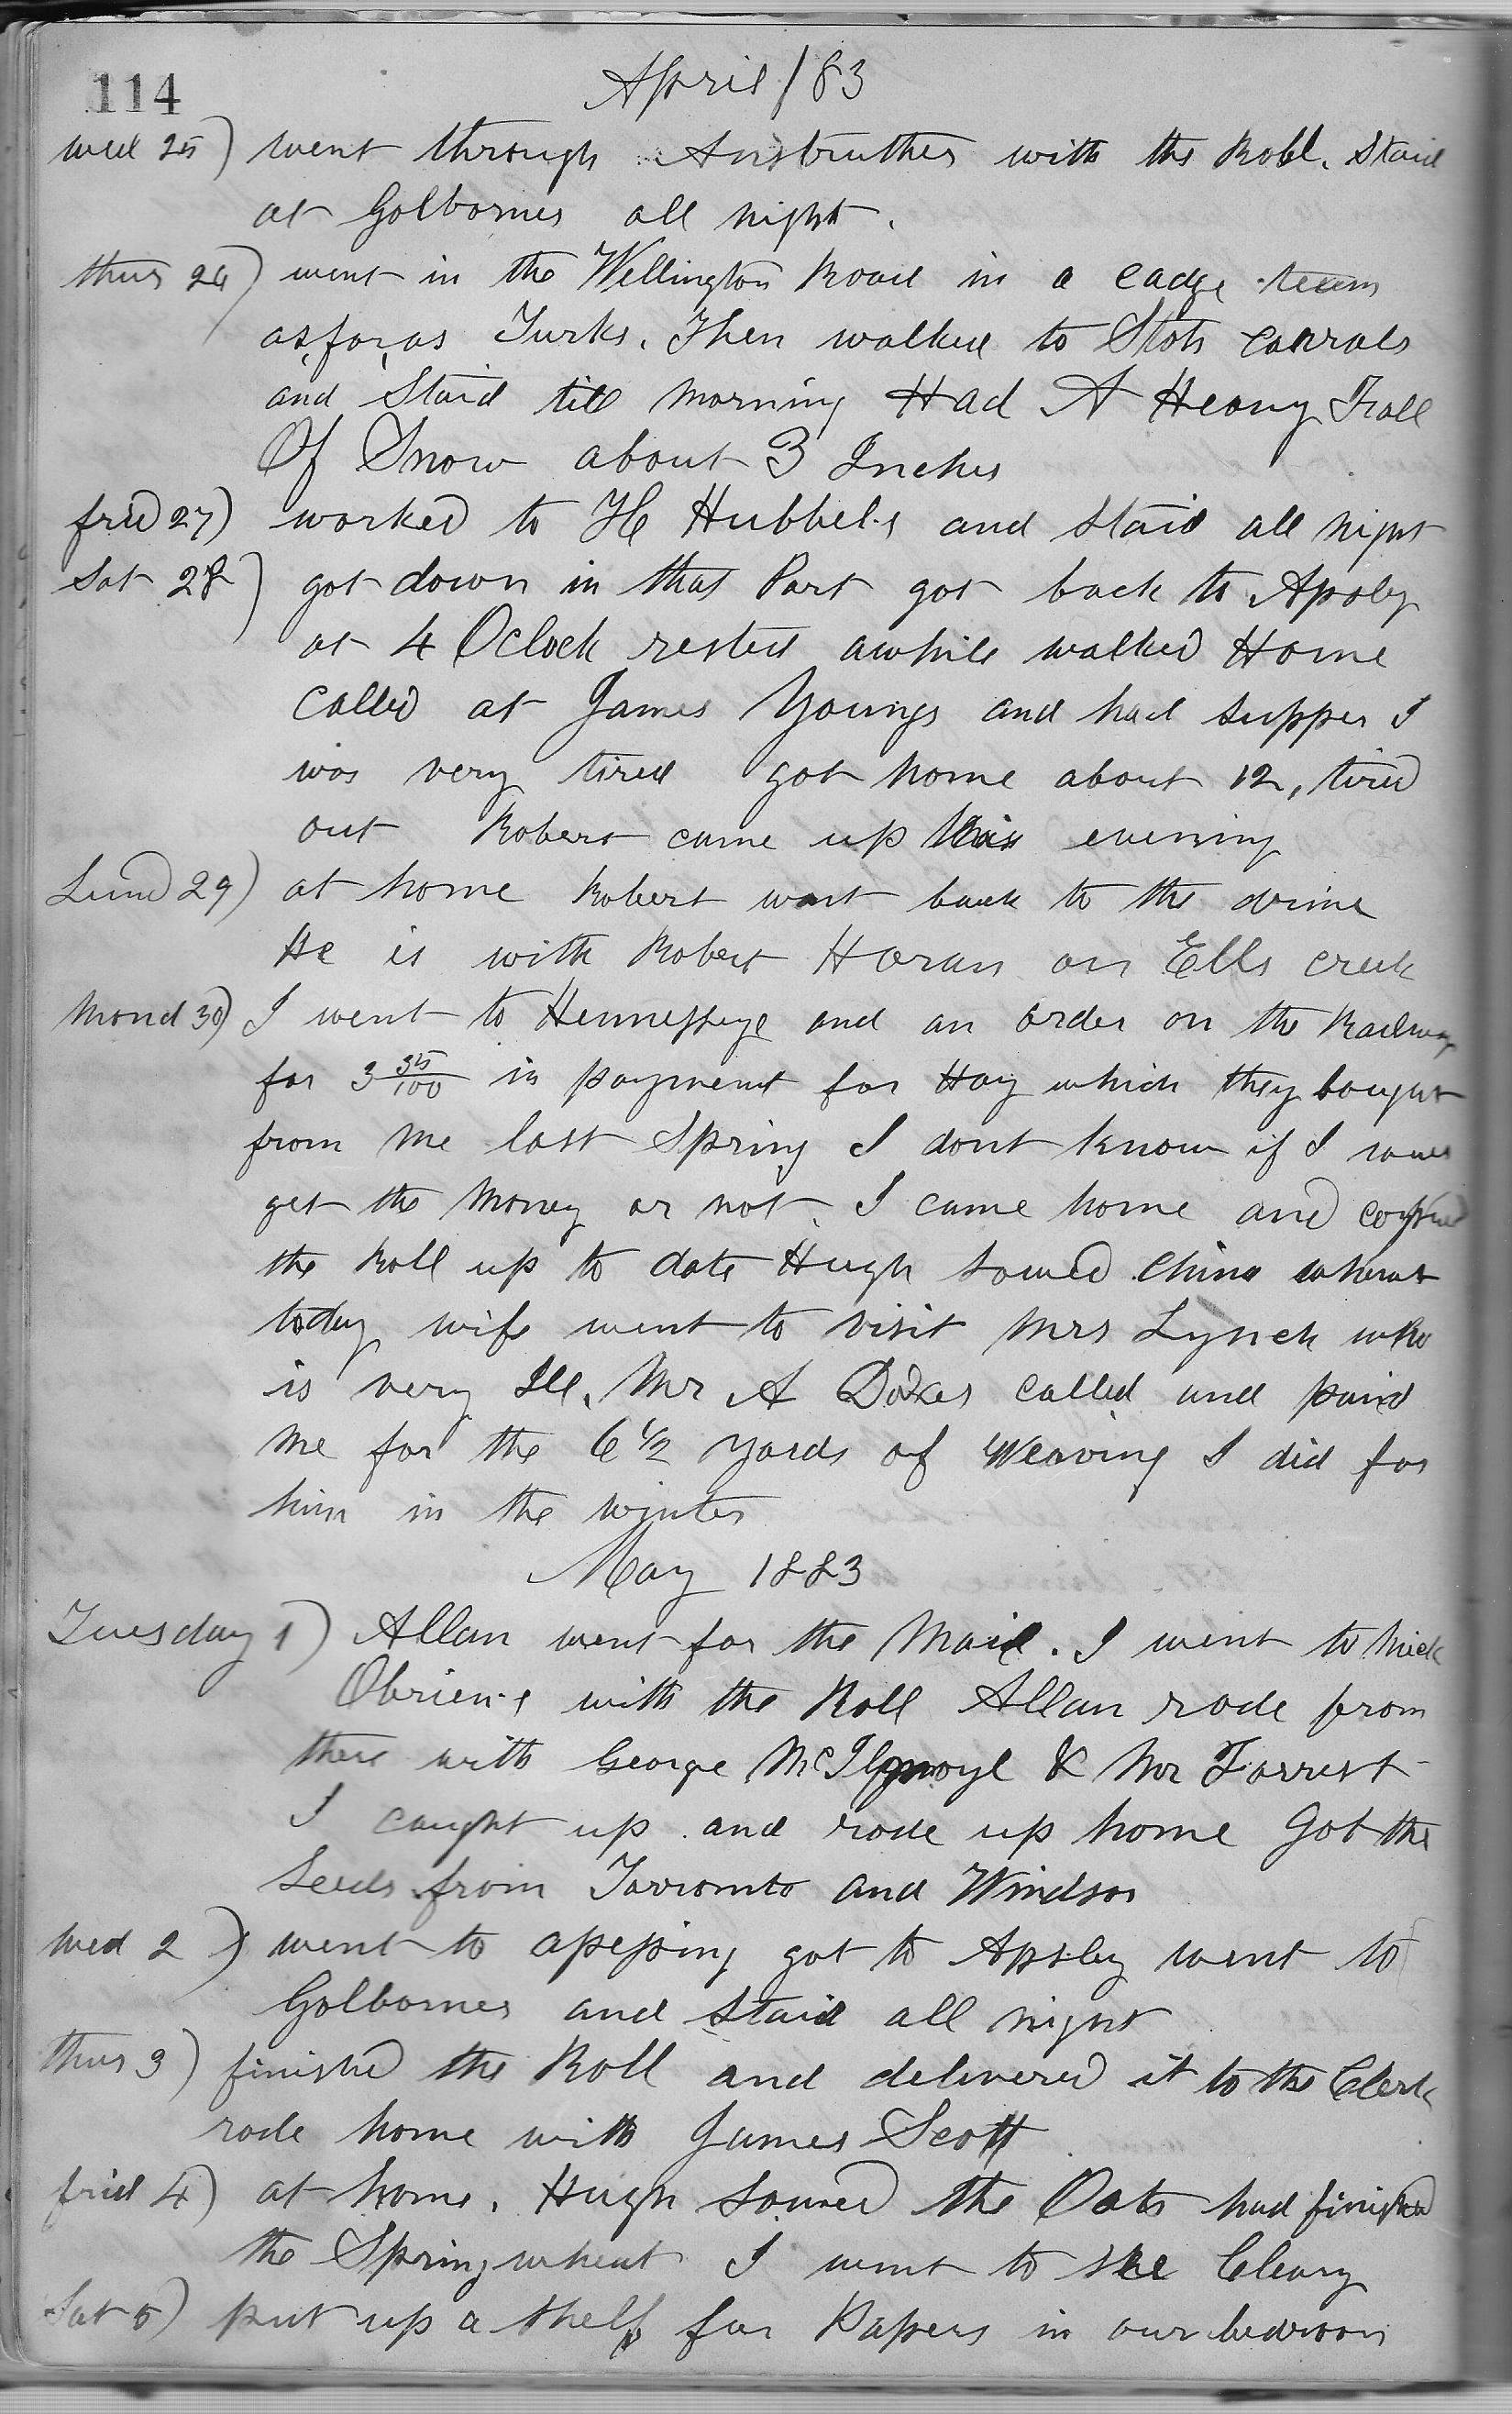 114
April / 83
wed 25) went through Anstruther with the Roll. Staid
at Golbornes all night.
thurs 26) went in the Wellington Road in a cadge team
as far as Turks. Then walked to Stots
and Staid till morning Had A Heavy Fall
Of Snow about 3 Inches
frid 27) worked to H Hubbel's and staid all night
Sat 28) got down in that Part got back to Apsley
at 4 Oclock rested awhile walked Home
Called at James Youngs and had supper I
was very tired got home about 12, tired
out Robert came up this evening
Sund 29) at home Robert went back to the drive
He is with Robert Horan on Ells creek
Mond 30) I went to and an order on the Railway
for 3 35/100 in payment for Hay which they bought
from me last Spring I dont know if I
get the Money or not. I came home and copied
the Roll up to date Hugh sowed China wheat
today wife went to visit Mrs Lynch who
is very Ill. Mr A called and paid
me for the 6 1/2 yards of Weaving I did for
him in the winter
May 1883
Tuesday 1) Allan went for the Mail. I went to Mick
Obrien's with the Roll Allan rode from
there with George & Mr Forrest
I caught up and rode up home Got the
Seeds from Torronto and Windsor
Wed 2) went to got to Apsley went to
Golbornes and staid all night
thurs 3) finished the Roll and delivered it to the Clerk
rode home with James Scott
frid 4) at home. Hugh sowed the Oats had finished
the Spring wheat I went to see Cleary
Sat 5) put up a shelf for Papers in our bedroom